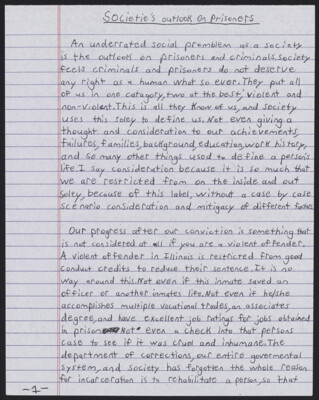 Societie's outlook on Prisoners
An underrated social promblem as a society
is the outlook on prisoners and criminals. Society
feels criminals and prisoners do not deserve
any right as a human what so ever. They put all
of us in one catagory, two at the best, violent and
non-violent. This is all they know of us, and society
uses this soley to define us. Not even giving a
thought and consideration to our achievements,
failures, families, background, education, work history,
and so many other things used to define a person's
life. I say consideration because it is so much that
we are restricted from on the inside and out
soley, because of this label, without a case by case
scenario consideration and mitigacy of different factors.
Our progress after our conviction is something that
is not considered at all if you are a violent offender.
A violent offender in Illinois is restricted from good
conduct credits to reduce their sentence. It is no
way around this. Not even if this inmate saved an
officer or another inmates life. Not even if he/she
accomplishes multiple vocational trades, an associates
degree, and have excellent job ratings for jobs obtained
in prison. Not even a check into that persons
case to see if it was cruel and inhumane. The
department of corrections, our entire governmental
system, and society has forgotten the whole reason
for incarceration is to rehabilitate a person, so that
-1-